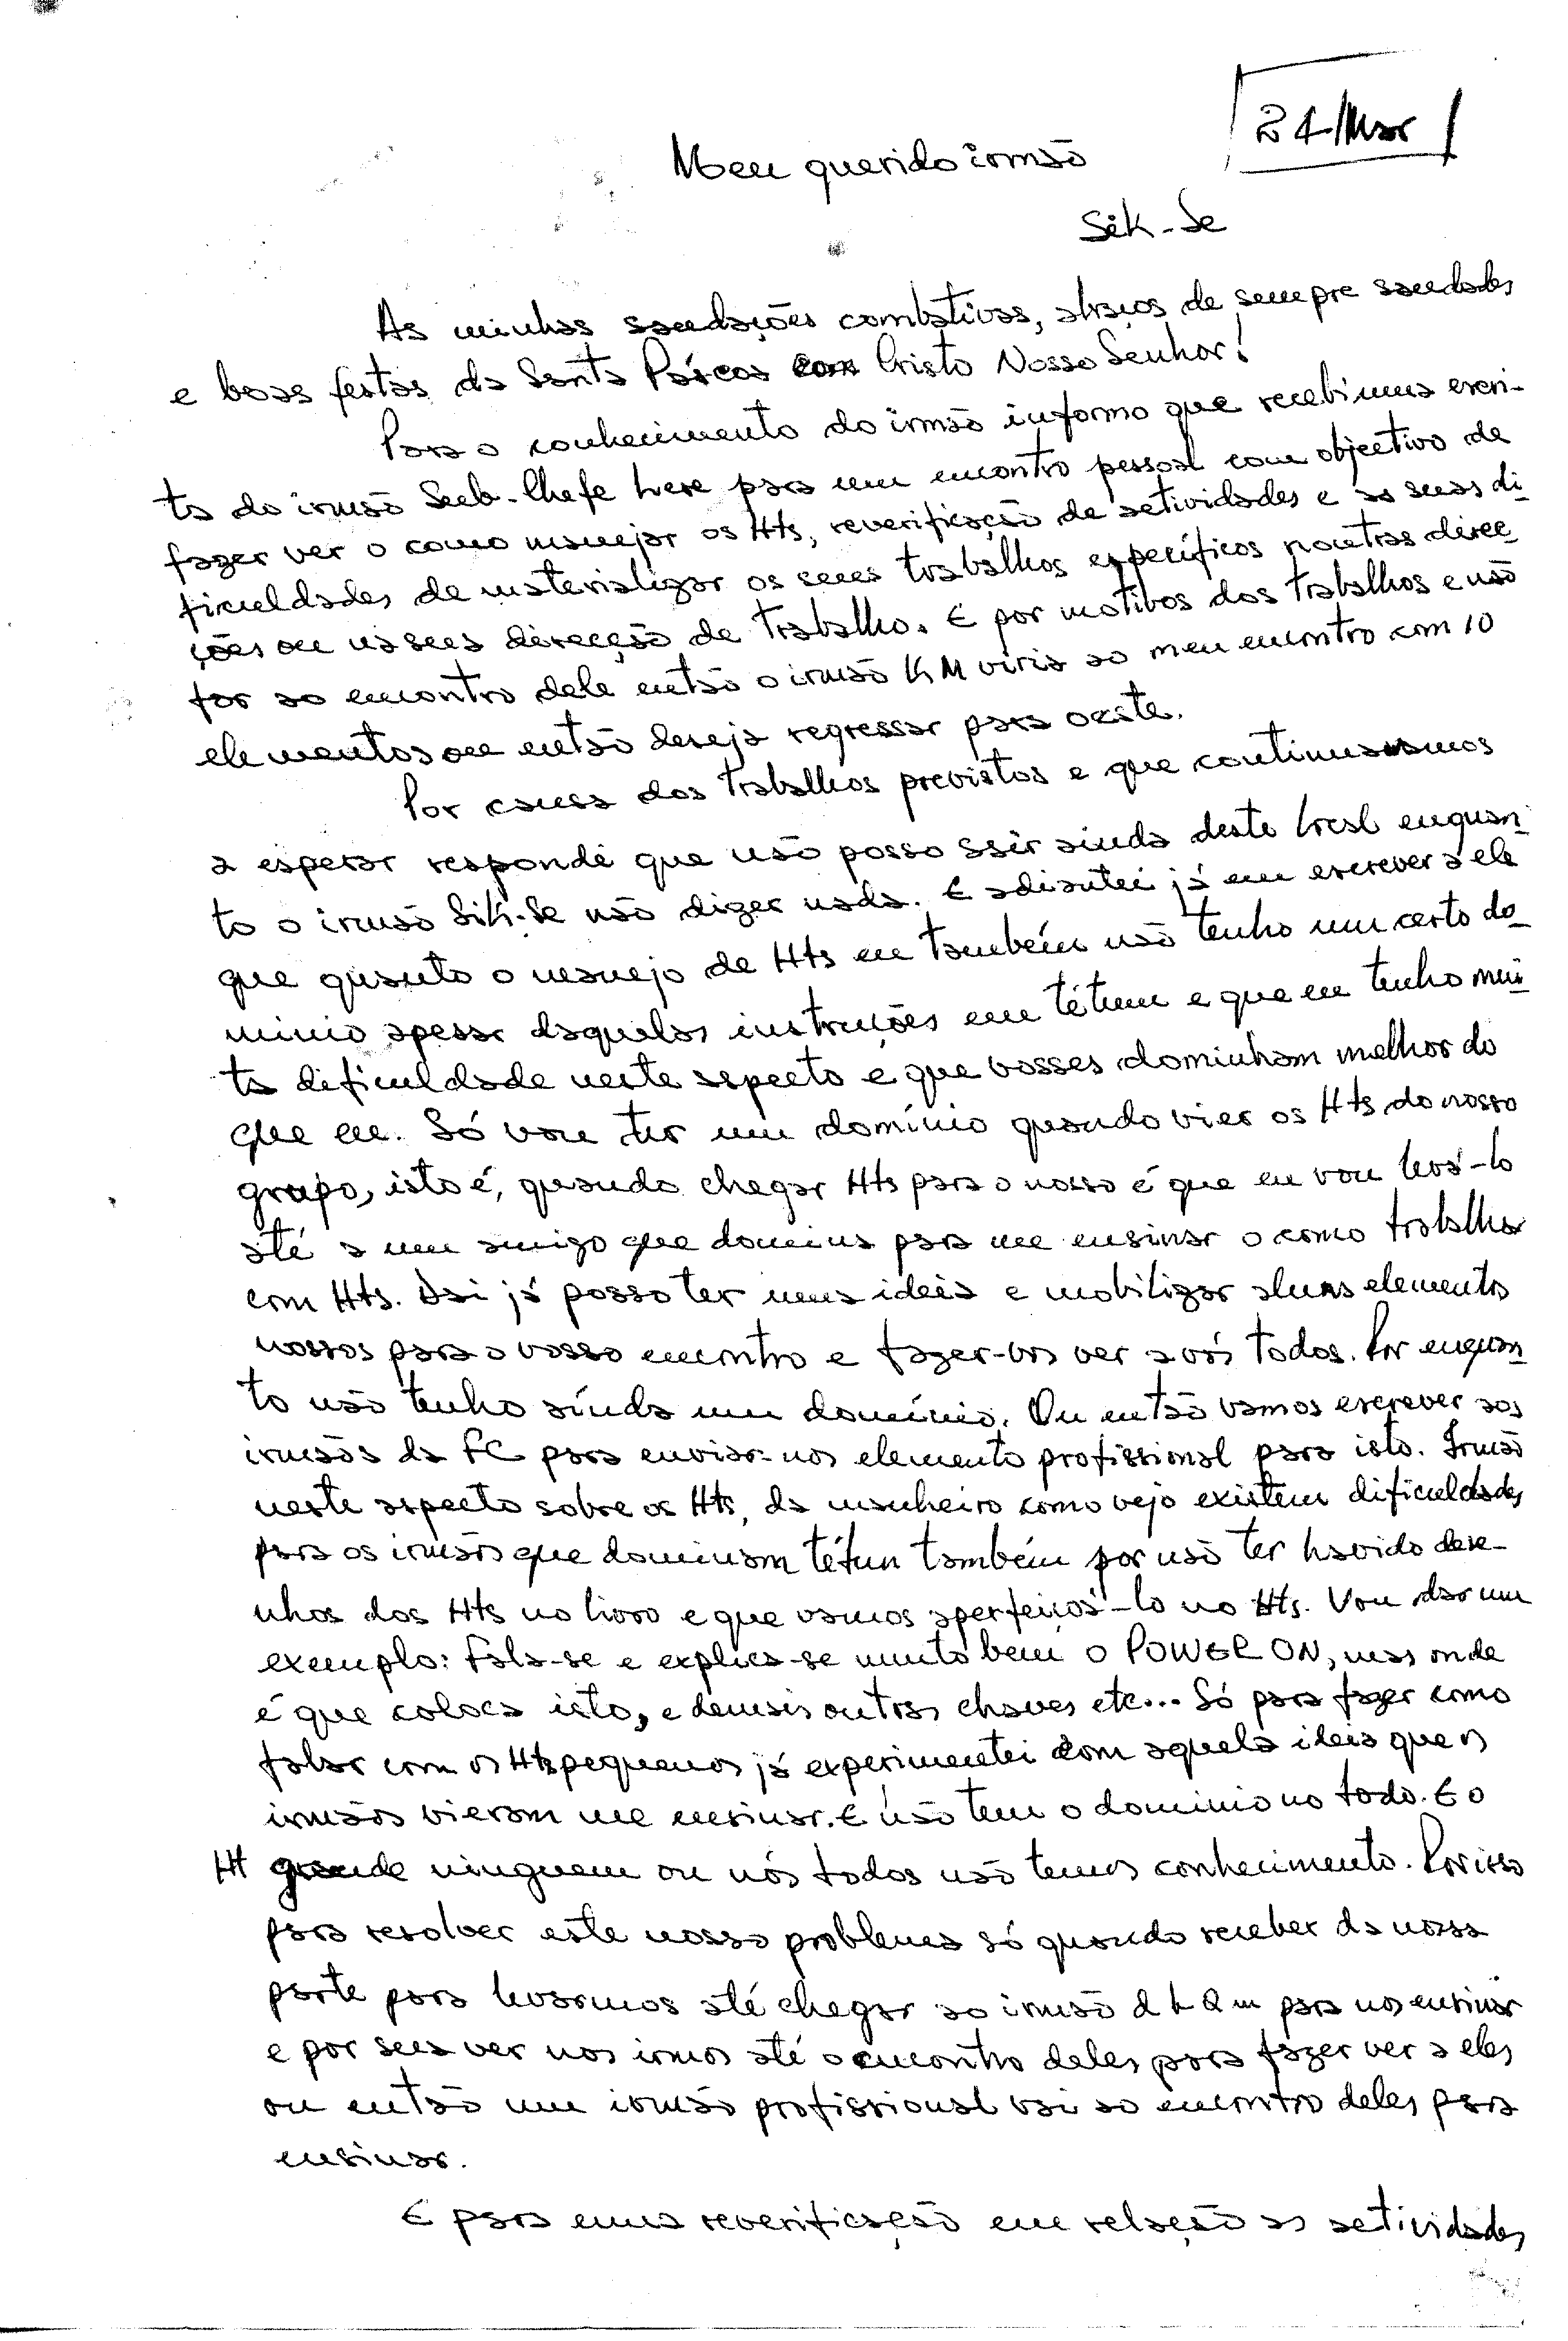 24/Mar
Meu querido irmão
Sik-Se
As minhas saudações combativas, abraços de sempre saudades
e boas festas da Santa Páscoa com Cristo Nosso Senhor!
Para o conhecimento do irmão informo que recebi uma escri-
ta do irmão Sub-Chefe Lere para um encontro pessoal com objectivo de
fazer ver o como manejar os Hts, reverificação de actividades e as suas di-
ficuldades de materializar os seus trabalhos específicos noutras direc-
ções ou na sua direcção de trabalho. E por motivos dos trabalhos e não
for ao encontro dele então o irmão KM viria ao meu encontro com 10
elementos ou então deseja regressar para oeste.
Por causa dos trabalhos previstos e que continuamos
a esperar respondi que não posso sair ainda deste local enquan-
to o irmão Sik-Se não dizer nada. E adiantei já em escrever a ele
que quanto o manejo de Hts eu também não tenho um certo do-
minio apesar daquelas instruções em tétum e que eu tenho mui-
ta dificuldade neste aspecto e que vosses dominham melhor do
que eu. Só vou ter um domínio quando vier os Hts do nosso
grupo, isto é, quando chegar Hts para o nosso é que eu vou levá-lo
até a um amigo que domina para me ensinar o como trabalha
com Hts. Daí já posso ter uma ideia e mobilizar elementos
nossos para o vosso encontro e fazer-vos ver a vós todos. Por enquan-
to não tenho ainda um domínio. Ou então vamos escrever aos
irmãos da FC para enviar-nos elemento profissional para isto. Irmão
neste aspecto sobre os Hts, da manheiro como vejo existem dificuldades
para os irmãos que dominam tétun também por não ter havido dese-
nhos dos Hts no livro e que vamos aperfeiçoá-lo no Hts. Vou dar um
exemplo: fala-se e explica-se muito bem o POWER ON, mas onde
é que coloca isto, e demais outras chaves etc... Só para fazer como
falar com os Hts pequenos já experimentei com aquela ideia que os
irmãos vieram me ensinar. E não tem o dominio no todo. E o
Ht grande ninguem ou nós todos não temos conhecimento. Por isso
para resolver este nosso problema só quando receber da nossa
parte para levarmos até chegar ao irmão para nos ensinar
e por sua ver nos irmos até o encontro deles para fazer ver a eles
ou então um irmão profissional vai ao encontro deles para
ensinar.
E para uma reverificação em relação as actividades